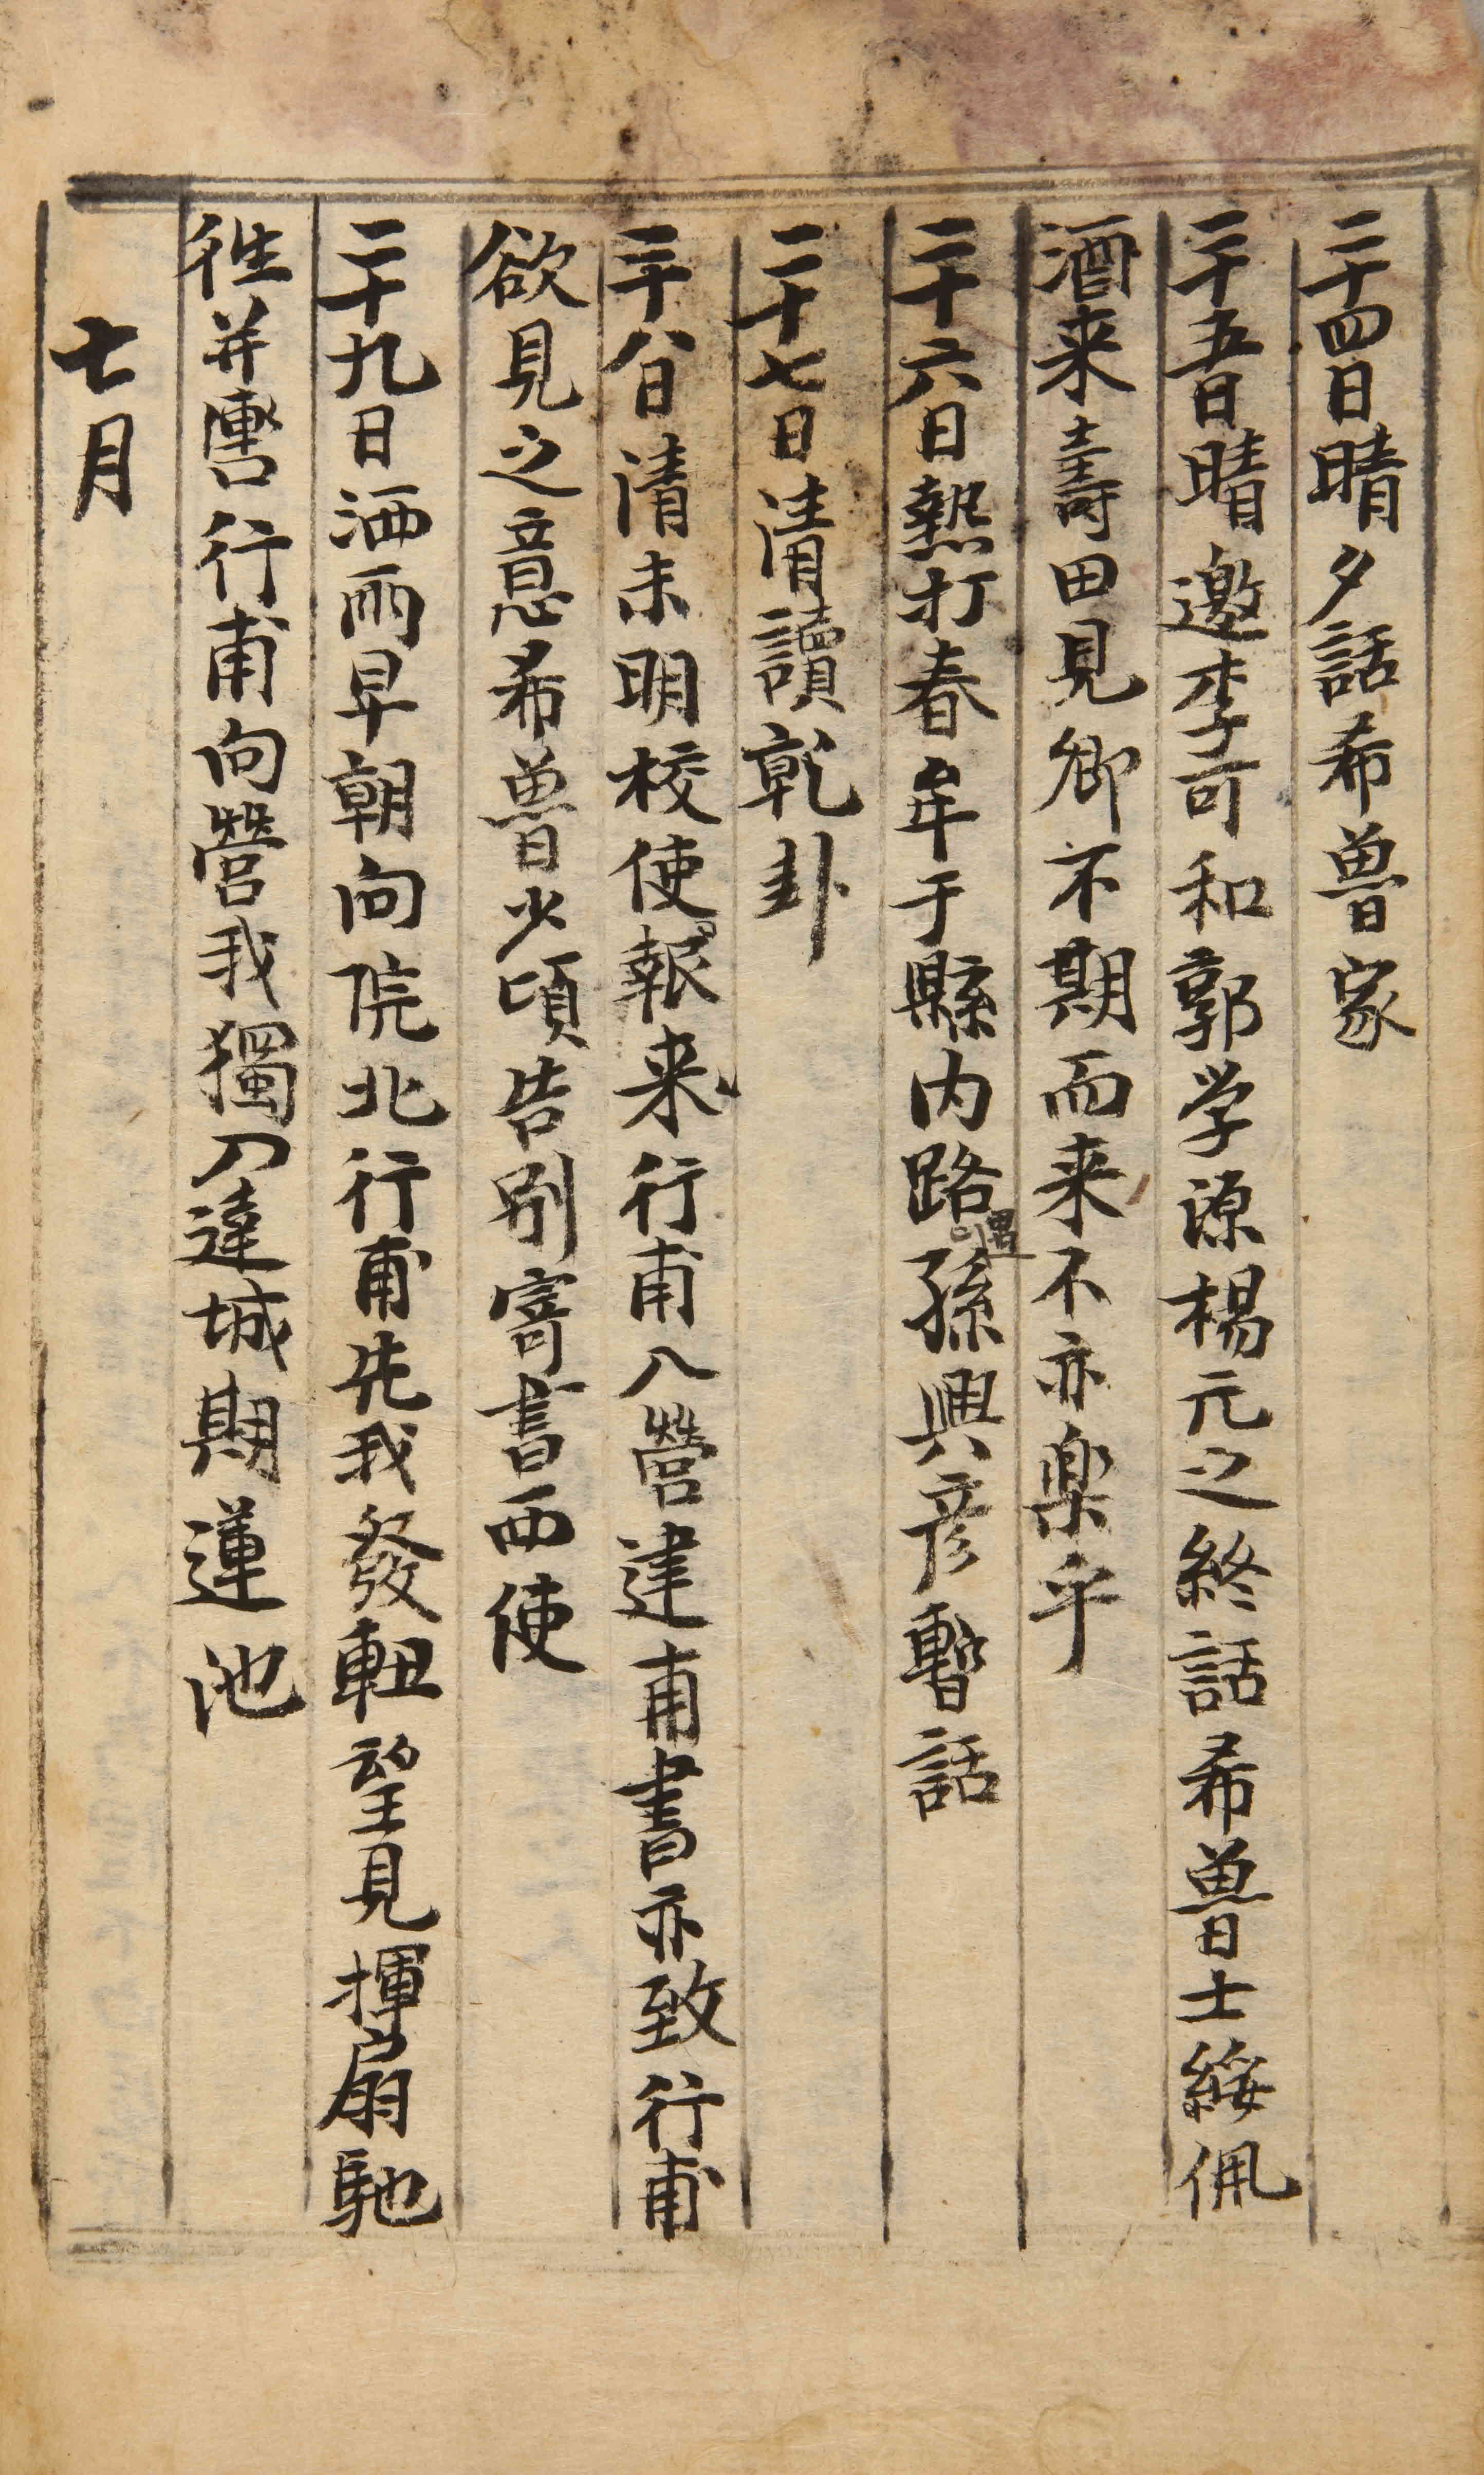 二十四日晴夕話希魯家
二十五日晴邀李可和郭学源楊元之終話希魯士綏佩
酒来壽田見卿不期而来不亦楽乎
二十六日熱打春牟于縣内路遇孫興彦暫話
二十七日清讀乾卦
二十八日清未明校使報来行甫入營建甫書亦致行甫
欲見之意希魯少頃告別寄書西使
二十九日洒雨早朝向院北行甫先我發軔望見揮扇馳
往并轡行甫向營我獨入達城期蓮池
七月